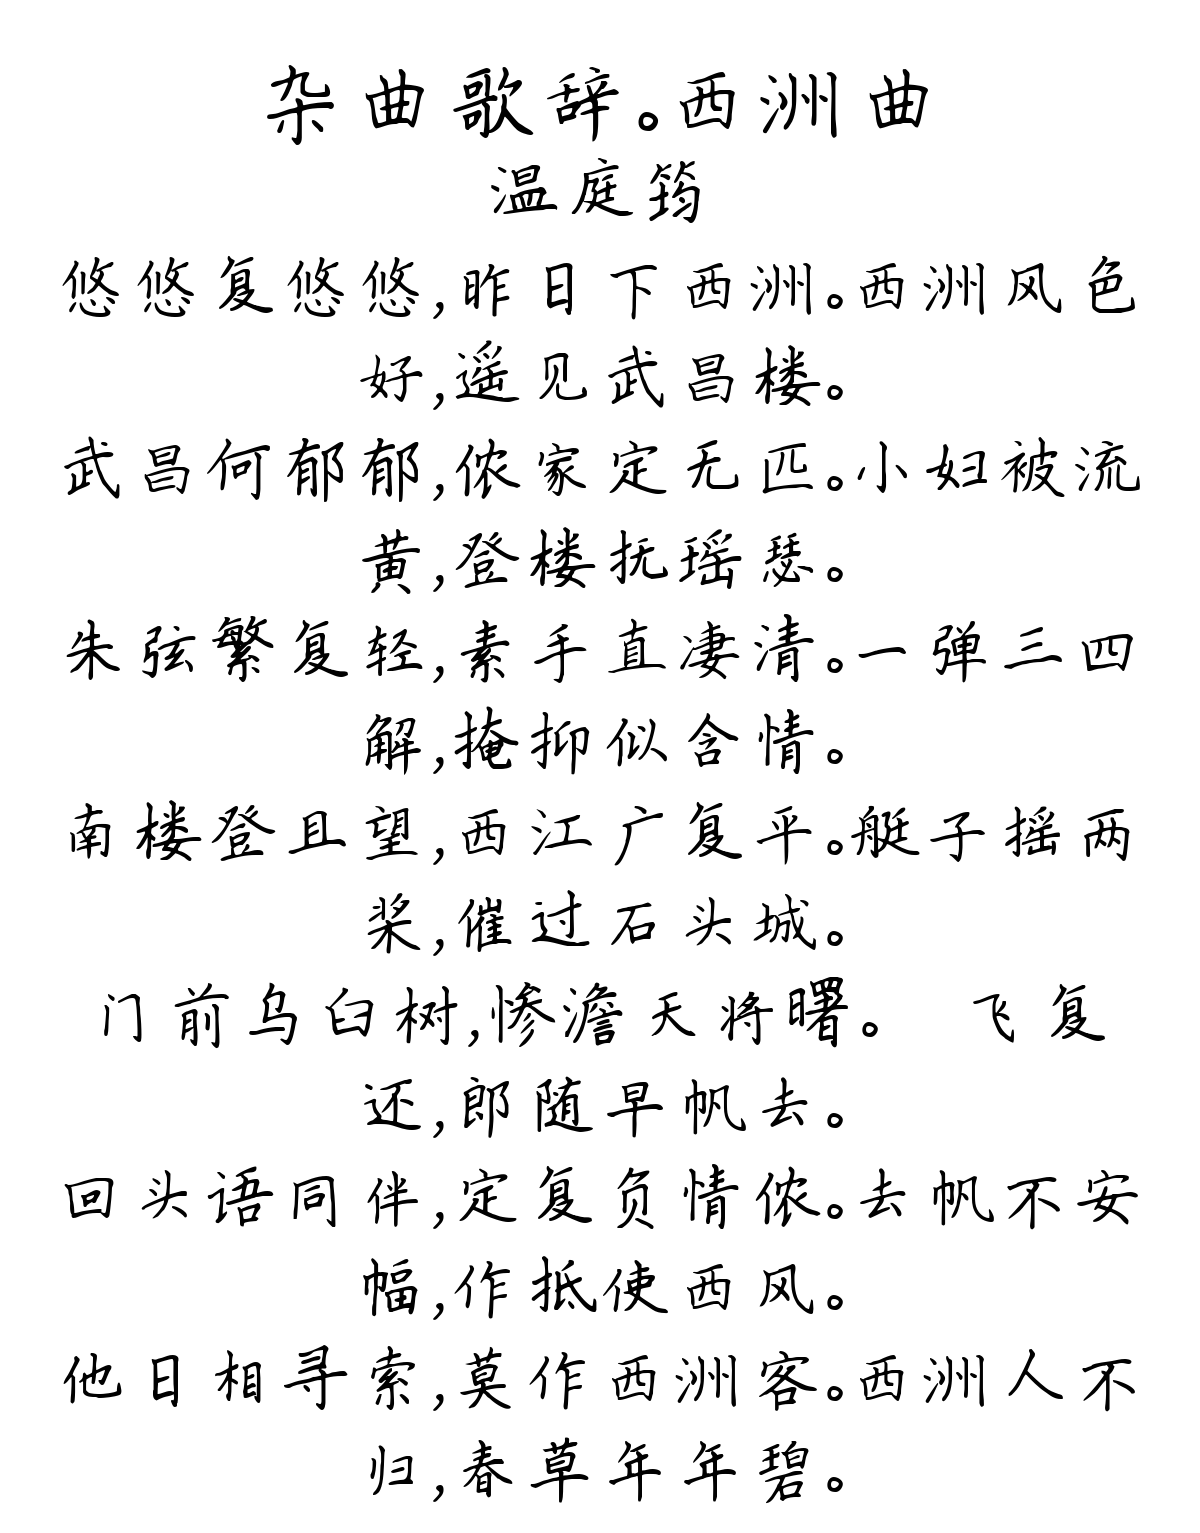 杂曲歌辞。西洲曲
温庭筠
悠悠复悠悠,昨日下西洲。西洲风色
好,遥见武昌楼。
武昌何郁郁,侬家定无匹。小妇被流
黄,登楼抚瑶瑟。
朱弦繁复轻,素手直凄清。一弹三四
解,掩抑似含情。
南楼登且望,西江广复平。艇子摇两
桨,催过石头城。
门前乌臼树,惨澹天将曙。 飞复
还,郎随早帆去。
回头语同伴,定复负情侬。去帆不安
幅,作抵使西风。
他日相寻索,莫作西洲客。西洲人不
归,春草年年碧。